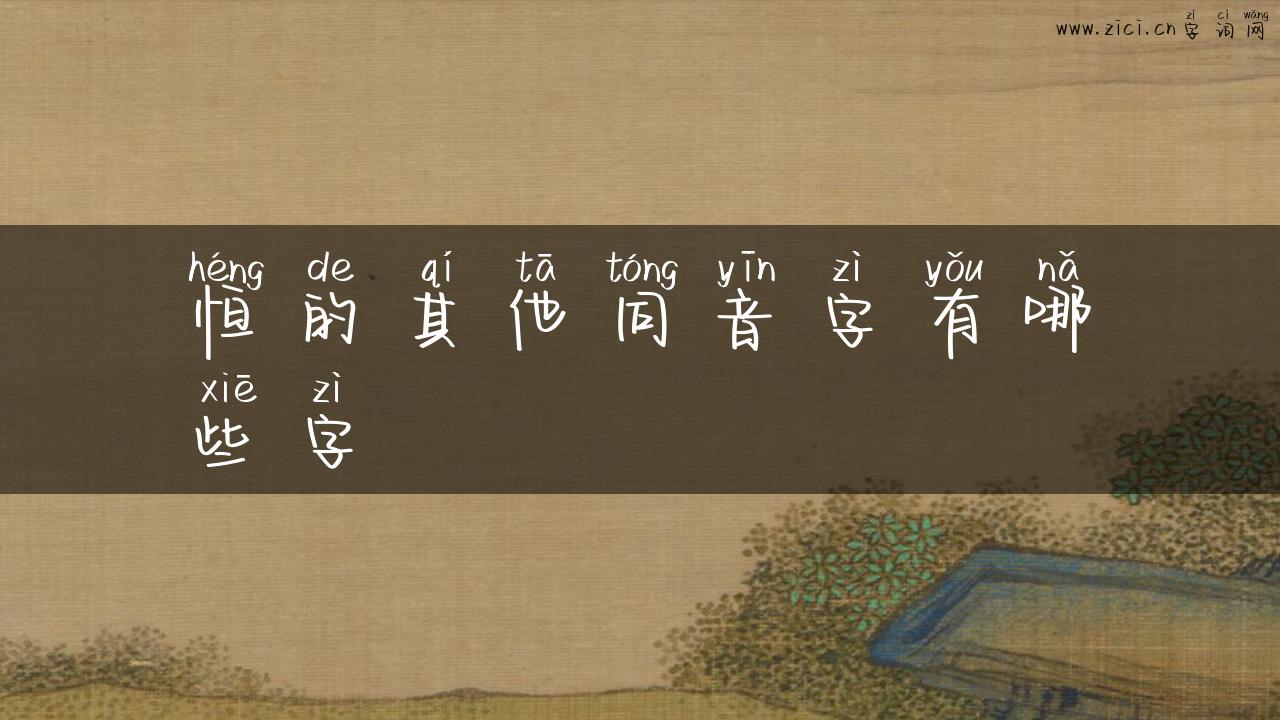 zì cí wǎng
www.zici.cn 字词网
héng de qí tā tóng yīn zì yǒu nǎ
恒的其他同音字有哪
xiē zì
些字